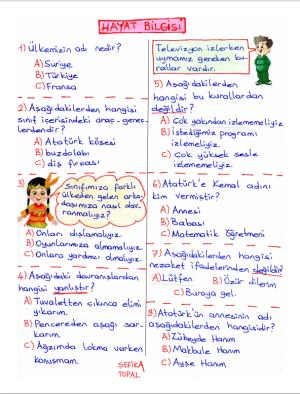 HAYAT BİLGİSİ
1) Ülkemizin adı nedir?
A) Suriye
B) Türkiye
C) Fransa
2) Aşağıdakilerden hangisi
sınıf içerisindeki araç-gereç-
lerdendir?
A) Atatürk köşesi
B) buzdolabı
C) diş fırçası
3)
Sınıfımıza farklı
ülkeden gelen arka-
daşımıza nasıl dav-
ranmalıyız?
A) Onları dışlamalıyız.
B) Oyunlarımıza almamalıyız.
C) Onlara yardımcı olmalıyız.
4) Aşağıdaki davranışlardan
hangisi yanlıştır?
A) Tuvaletten çıkınca elimi
yıkarım.
B) Pencereden aşağı sar-
karım.
C) Ağzımda lokma varken
konuşmam.
ŞEFİKA
TOPAL
Televizyon izlerken
uymamız gereken ku-
rallar vardır.
5) Aşağıdakilerden
hangisi bu kurallardan
değildir?
A) Çok yakından izlememeliyiz
B) İstediğimiz programı
izlemeliyiz.
C) Çok yüksek sesle
izlememeliyiz.
6) Atatürk'e Kemal adını
kim vermiştir?
A) Annesi
B) Babası
C) Matematik öğretmeni
7) Aşağıdakilerden hangisi
nezaket ifadelerinden değildir?
A) Lütfen
B) Özür dilerim
C) Buraya gel.
8) Atatürk'ün annesinin adı
aşağıdakilerden hangisidir?
A) Zübeyde Hanım
B) Makbule Hanım
C) Ayşe Hanım